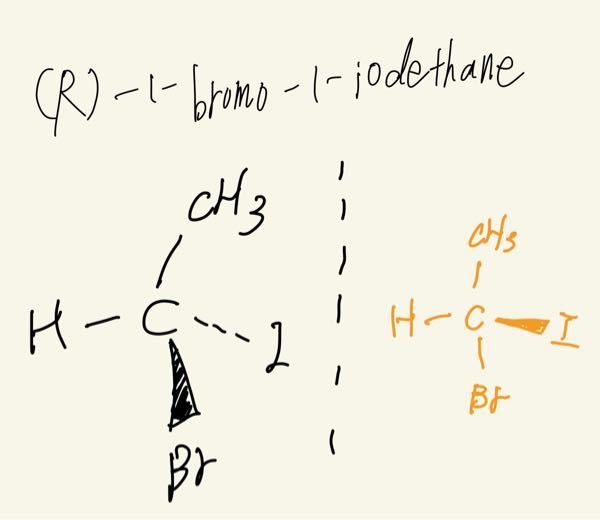 (R)-1-bromo-1-iodethane
CH3
H-C---I
Br
CH3
H-C-I
Br